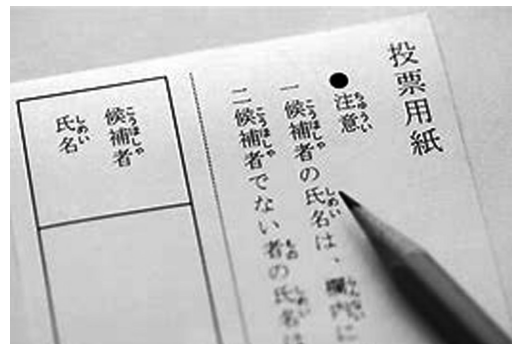 投票用紙
●注意
一 候補者の氏名は、欄内に
二 候補者でない者の氏名は
候補者
氏名